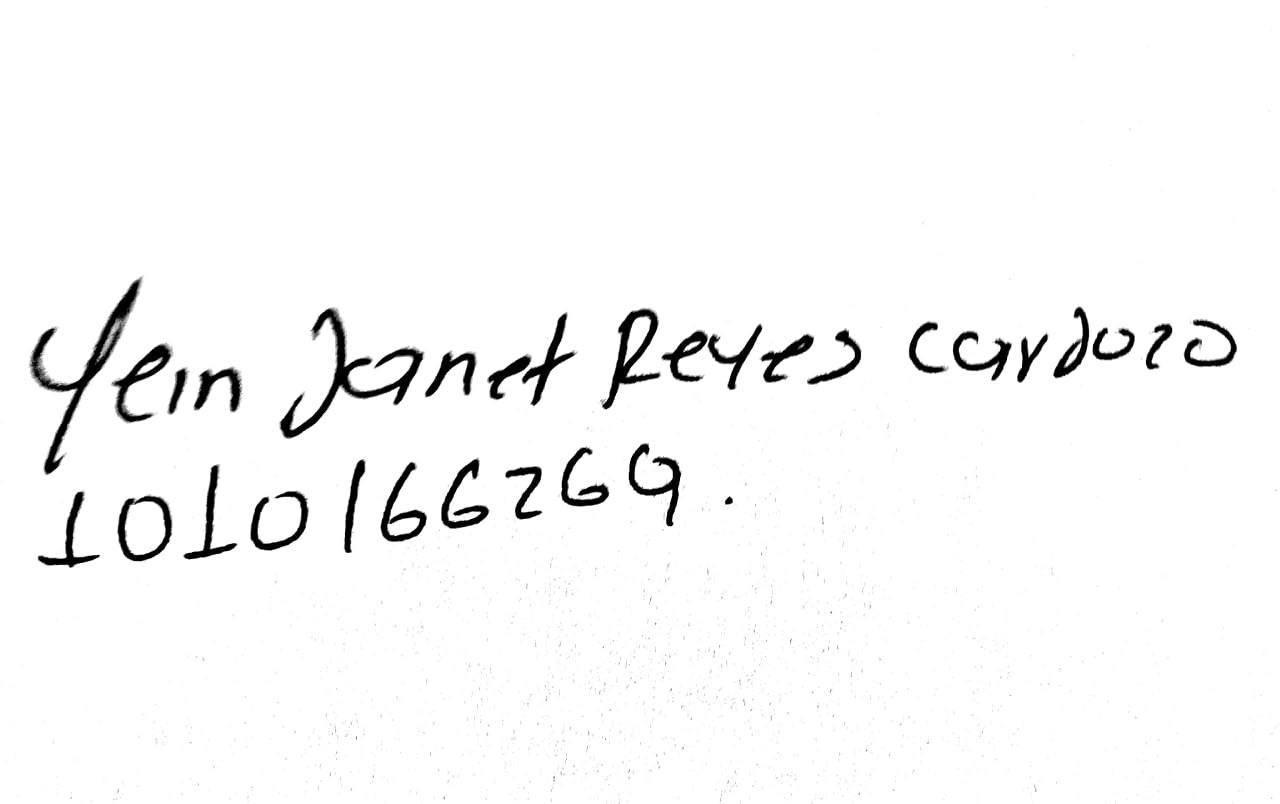 Yein Janet Reyes cardozo
1010166269.